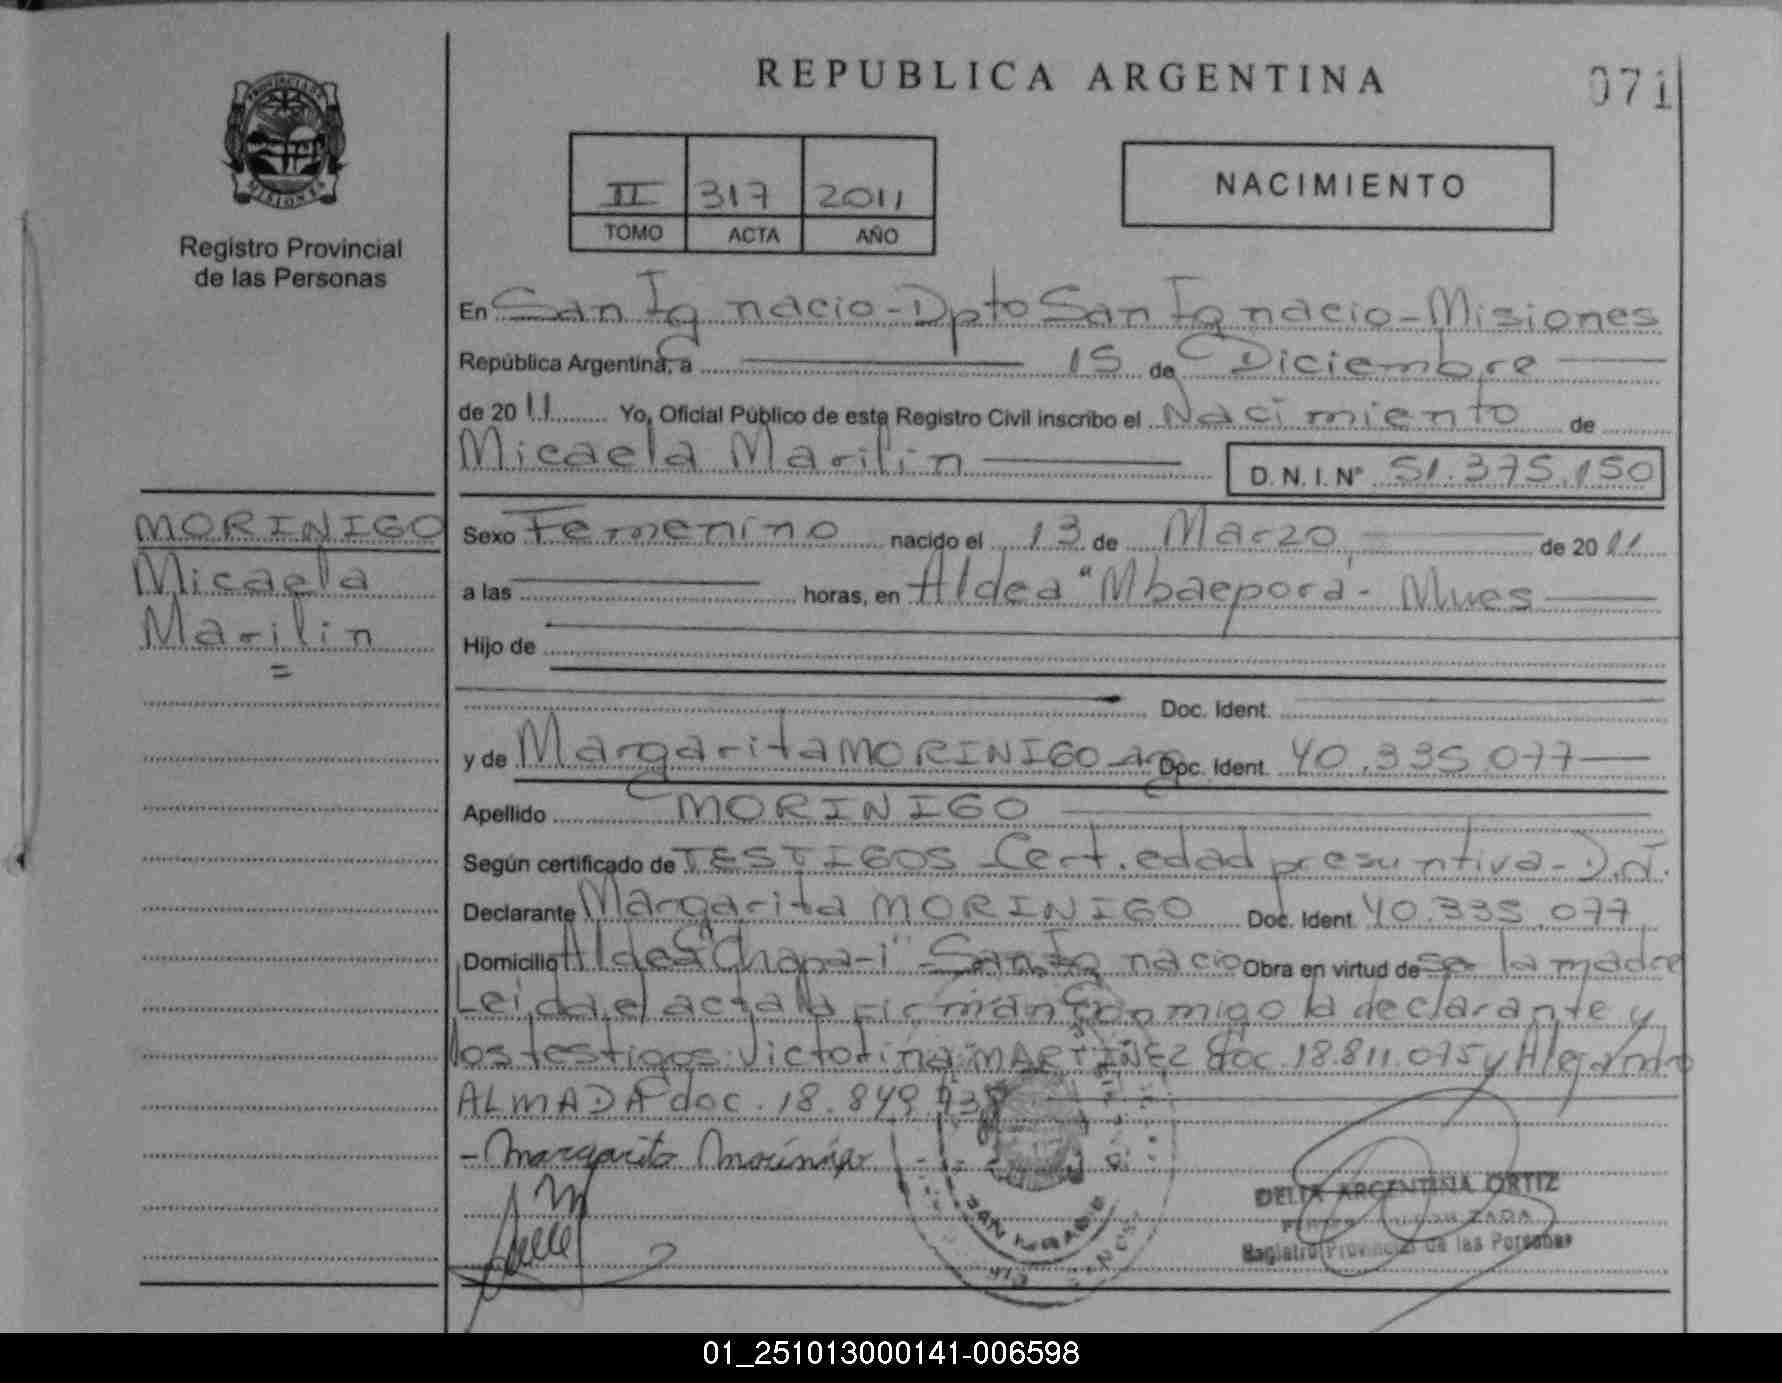 REPUBLICA ARGENTINA
071
PROVINCIA DE
MISIONES
Registro Provincial
de las Personas
II 317 2011
TOMO ACTA AÑO
NACIMIENTO
En San Ignacio - Dpto San Ignacio - Misiones
República Argentina, a 15 de Diciembre
de 2011 Yo, Oficial Público de este Registro Civil inscribo el Nacimiento de
Micaela Marilin D.N.I.N° 51.375.150
MORINIGO
Micaela
Marilin
=
Sexo Femenino nacido el 13 de Marzo de 2011
a las horas, en Aldea "Mbaepora" -
Hijo de
Doc. Ident.
y de Margarita MORINIGO - arg Doc. Ident. 40.335.077
Apellido MORINIGO
Según certificado de TESTIGOS - Cert. edad presuntiva - D.N.
Declarante Margarita MORINIGO Doc. Ident 40.335.077
Domicilio Aldea "Chapa-i" - San Ignacio Obra en virtud de ser la madre
Leida el acta la firman conmigo la declarante y
los testigos: Victorina MARTINEZ doc. 18.811.075 y Alejandro
ALMADA doc. 18.849.
- Margarita Morínigo
SAN IGNACIO
DELIA ARGENTINA ORTIZ
Registro Provincial de las Personas
01_251013000141-006598